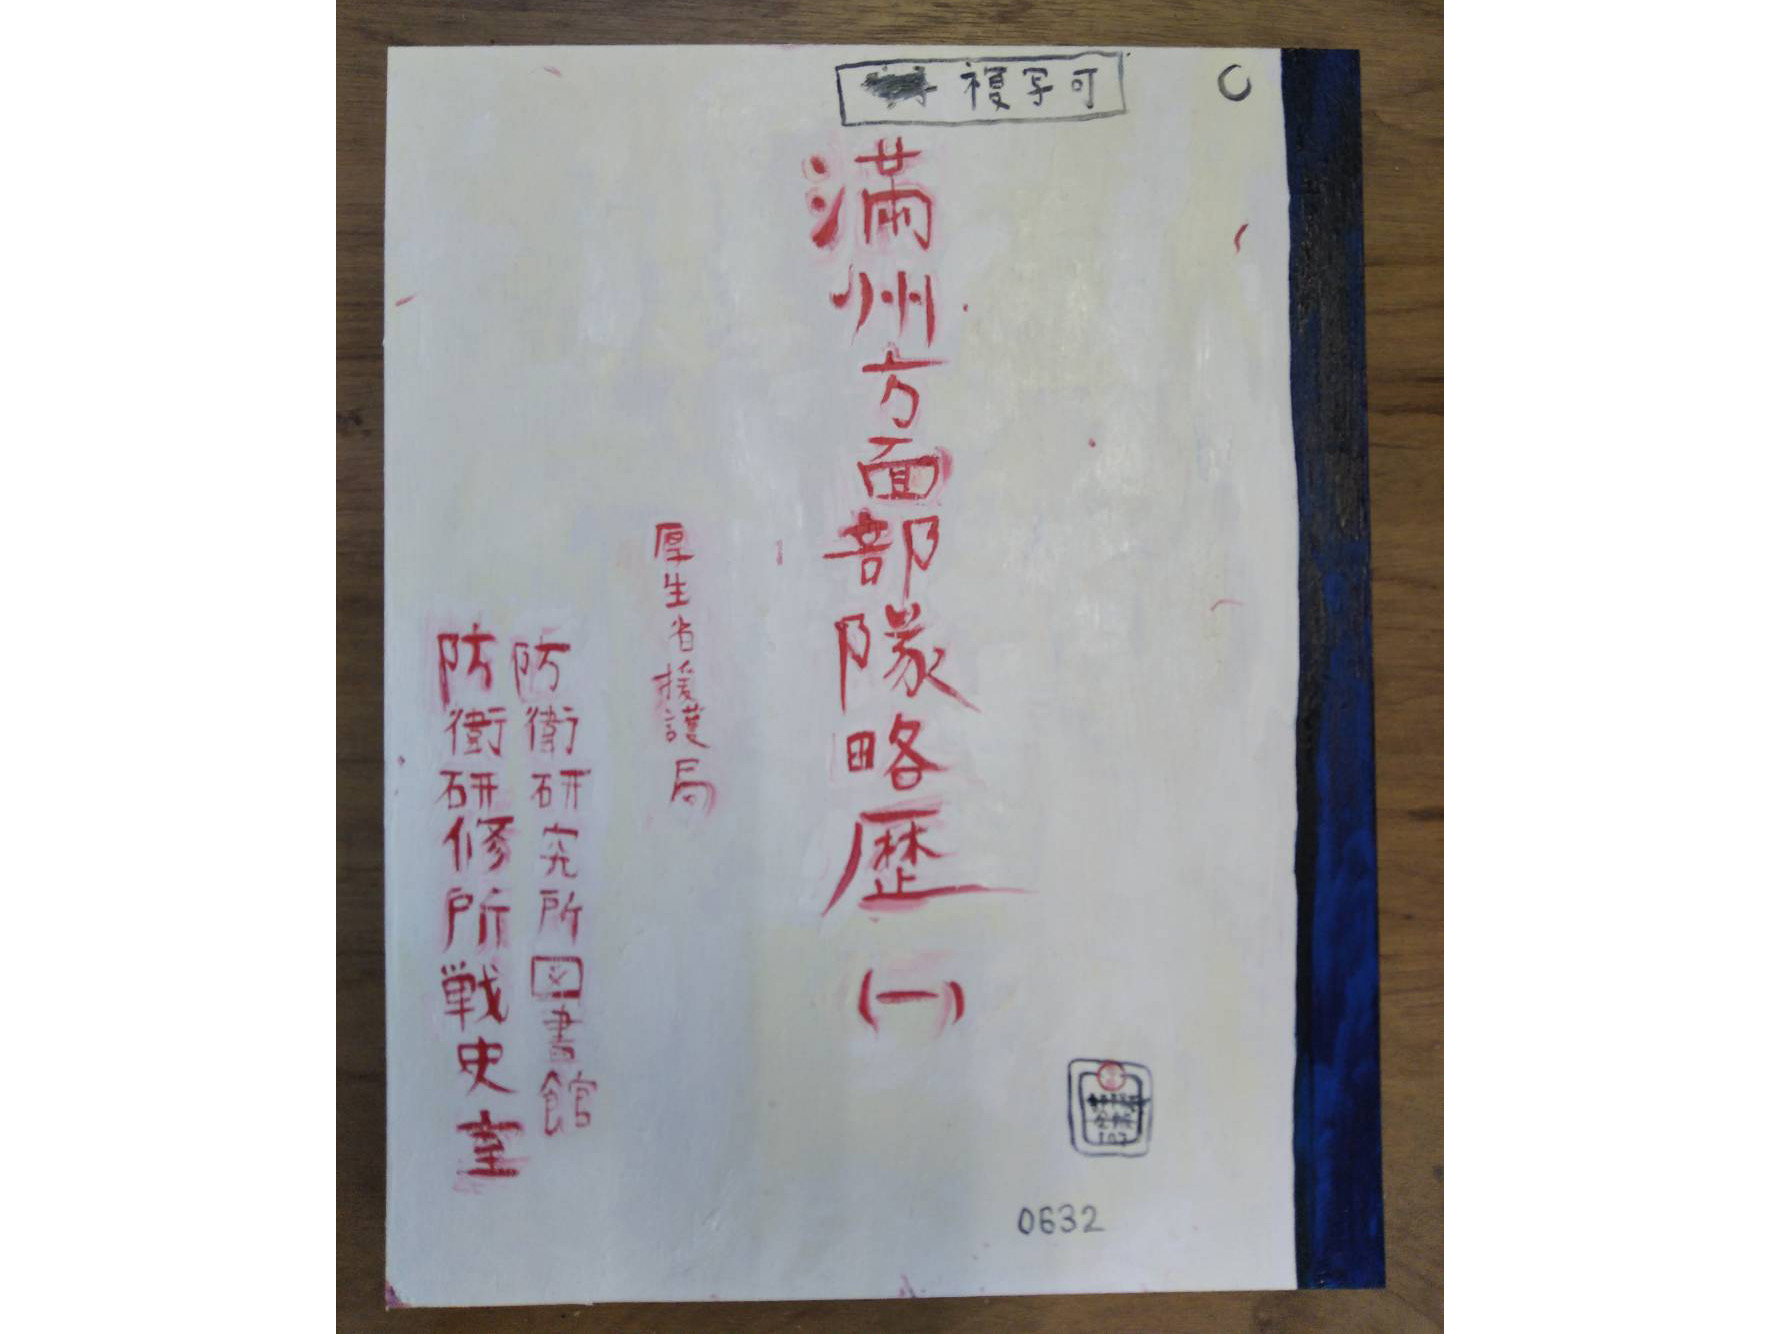 複写可
満州方面部隊略歴
(一)
厚生省援護局
防衛研究所図書館
防衛研修所戦史室
0632